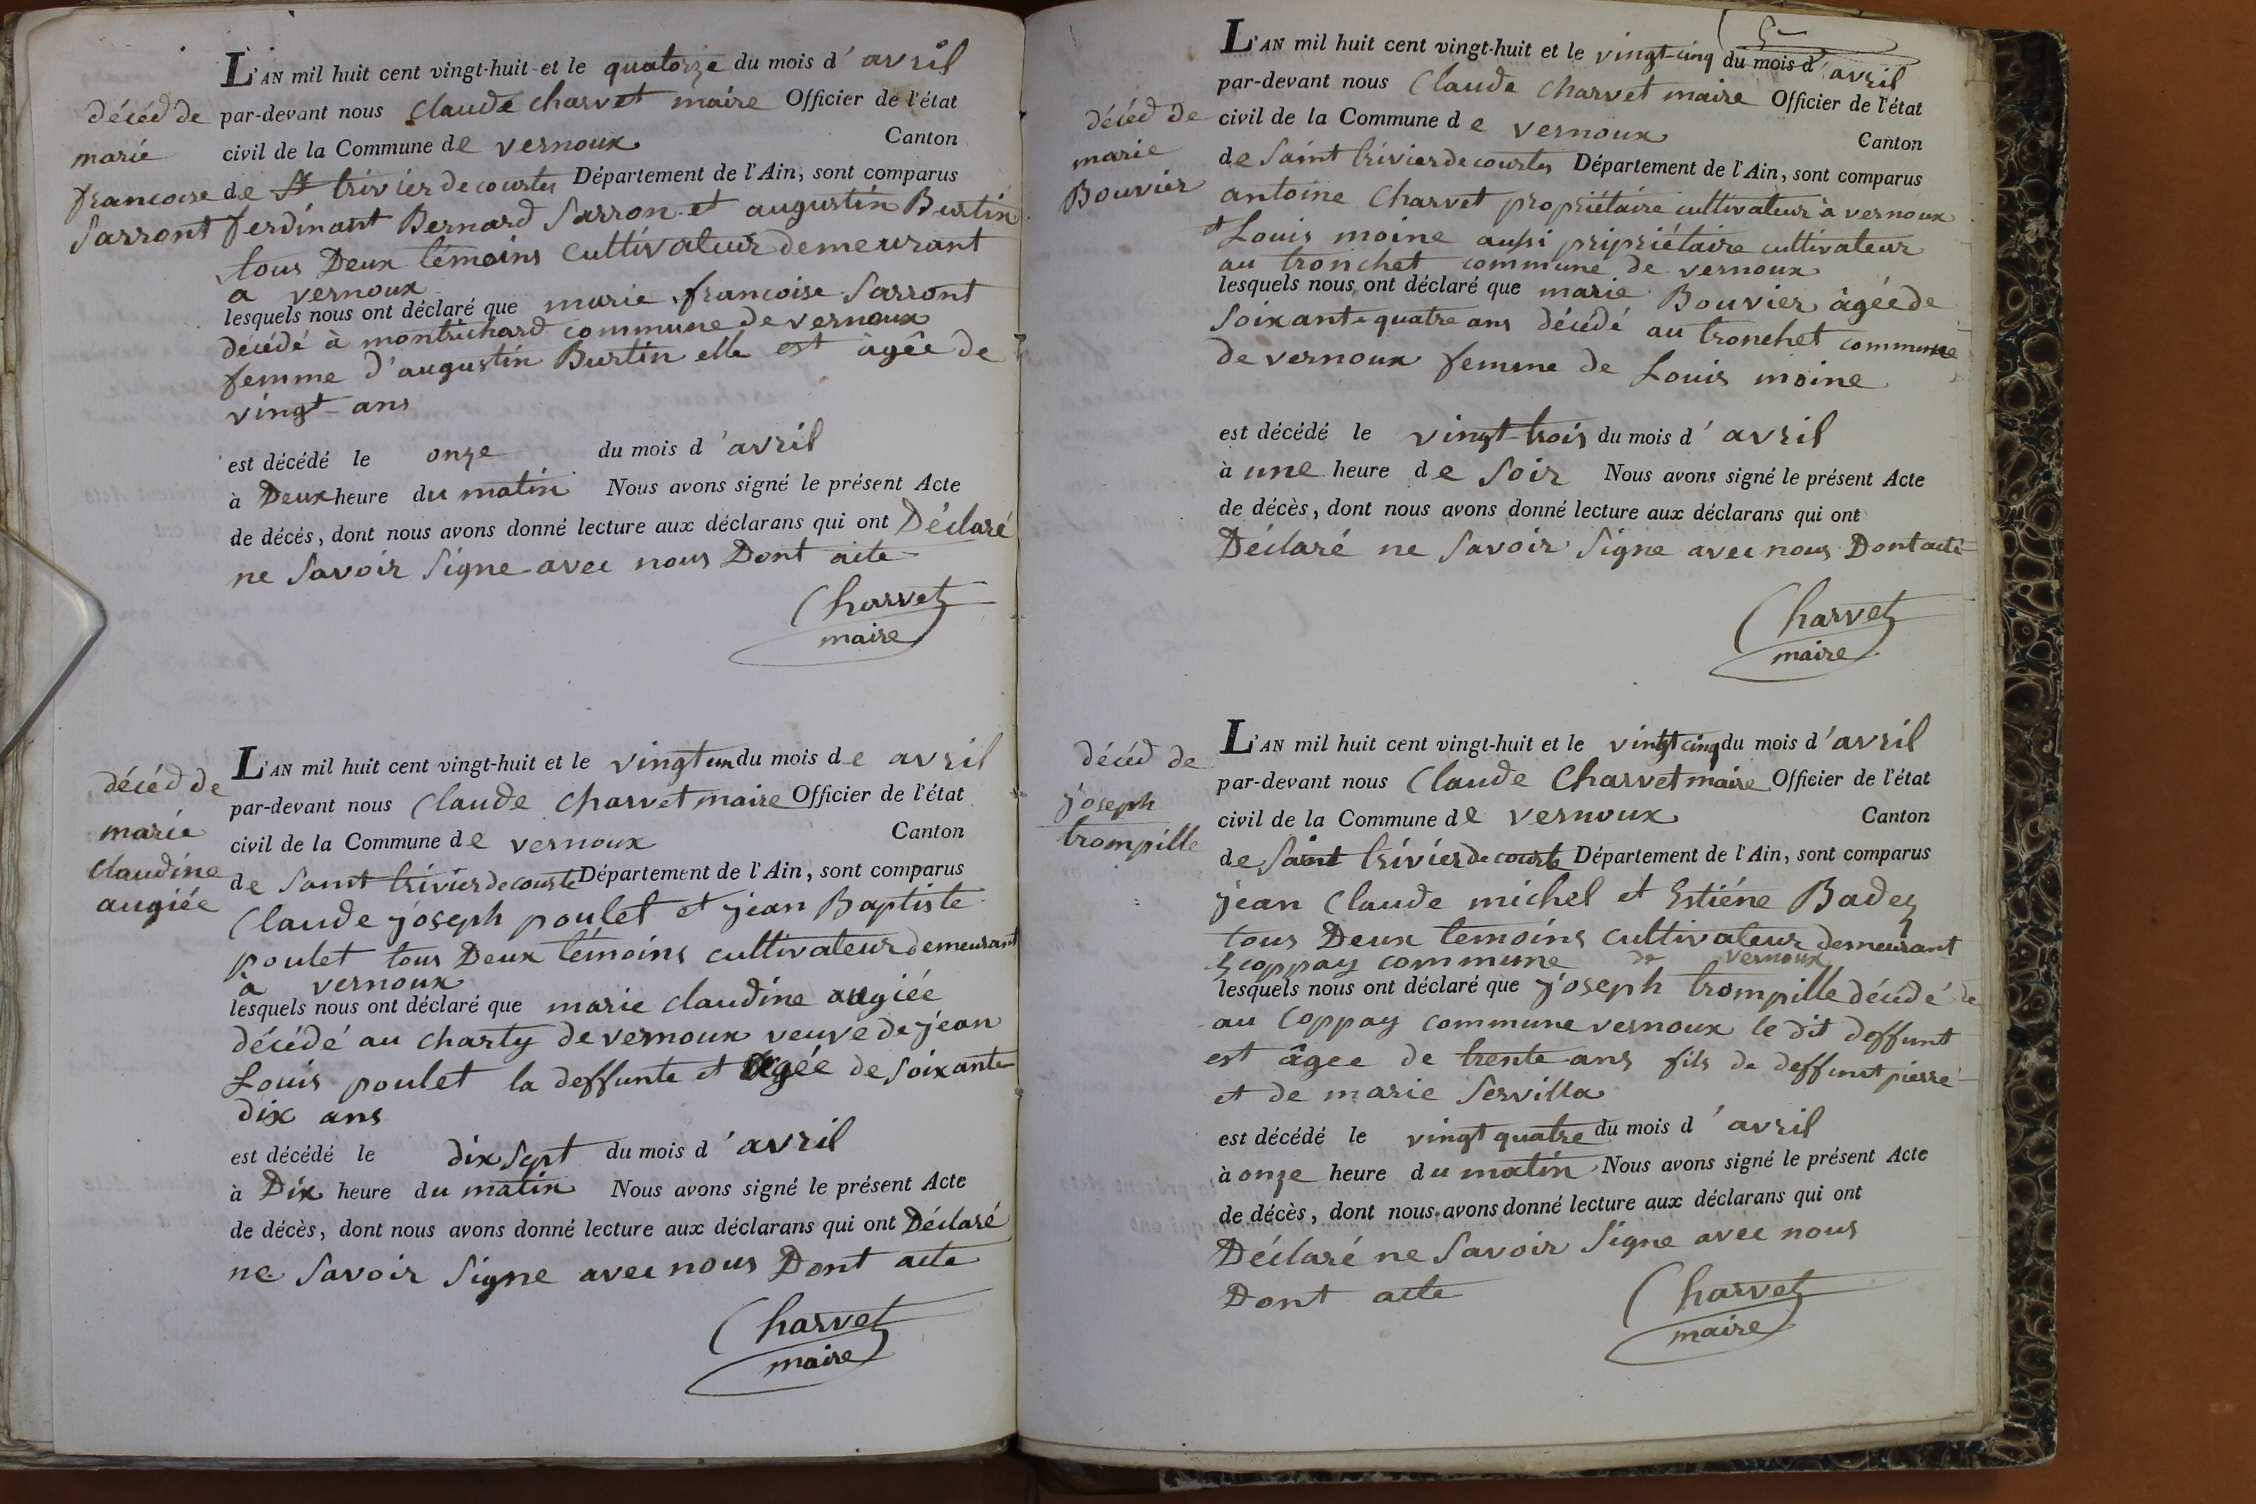 L'AN mil huit cent vingt-huit et le quatorze du mois d'avril
décéd de par-devant nous Claude charvet maire Officier de l'état
marie civil de la Commune de vernoux Canton
francoise de St trivier de courtes Département de l'Ain, sont comparus
Sarront ferdinant Bernard Sarron et augustin Burtin
tous Deux témoins cultivateur demeurant
a vernoux
lesquels nous ont déclaré que marie francoise Sarront
decédé à montrichard commune de vernoux
femme d'augustin Burtin elle est agée de
vingt-ans
est décédé le onze du mois d'avril
à Deux heure du matin Nous avons signé le présent Acte
de décès, dont nous avons donné lecture aux déclarans qui ont Déclaré
ne Savoir Signe avec nous Dont acte
Charvet
maire
L'AN mil huit cent vingt-huit et le vingt un du mois de avril
décéd de par-devant nous Claude charvet maire Officier de l'état
marie civil de la Commune de vernoux Canton
claudine de Saint trivier de courte Département de l'Ain, sont comparus
augiée Claude joseph poulet et jean Baptiste
poulet tous Deux témoins cultivateur demeurant
à vernoux
lesquels nous ont déclaré que marie claudine augiée
décédé au charty de vernoux veuve de jean
Louis poulet la deffunte et agée de soixante
dix ans
est décédé le dix sept du mois d'avril
à Dix heure du matin Nous avons signé le présent Acte
de décès, dont nous avons donné lecture aux déclarans qui ont Déclaré
ne Savoir Signe avec nous Dont acte
Charvet
maire
L'AN mil huit cent vingt-huit et le vingt-cinq du mois d'avril
par-devant nous Claude charvet maire Officier de l'état
décéd de civil de la Commune de vernoux Canton
marie de Saint trivier de courtes Département de l'Ain, sont comparus
Bouvier antoine Charvet propriétaire cultivateur à vernoux
et Louis moine aussi pripriétaire cultivateur
au tronchet commune de vernoux
lesquels nous ont déclaré que marie Bouvier âgée de
Soixante quatre ans décédé au tronchet commune
de vernoux femme de Louis moine
est décédé le vingt-trois du mois d'avril
à une heure de Soir Nous avons signé le présent Acte
de décès, dont nous avons donné lecture aux déclarans qui ont
Déclaré ne Savoir Signe avec nous Dont acte
Charvet
maire
L'AN mil huit cent vingt-huit et le vingt cinq du mois d'avril
décéd de par-devant nous Claude Charvet maire Officier de l'état
joseph civil de la Commune de vernoux Canton
trompille de Saint trivier de courte Département de l'Ain, sont comparus
jean Claude michel et Estiéne Badey
tous Deux temoins cultivateur demeurant
commune de vernoux
lesquels nous ont déclaré que joseph trompille décédé de
au Coppay commune vernoux le dit deffunt
est âgee de trente ans fils de deffunt pierre
et de marie Servilla
est décédé le vingt quatre du mois d'avril
à onze heure du matin Nous avons signé le présent Acte
de décès, dont nous avons donné lecture aux déclarans qui ont
Déclaré ne Savoir Signe avec nous
Dont acte
Charvet
maire